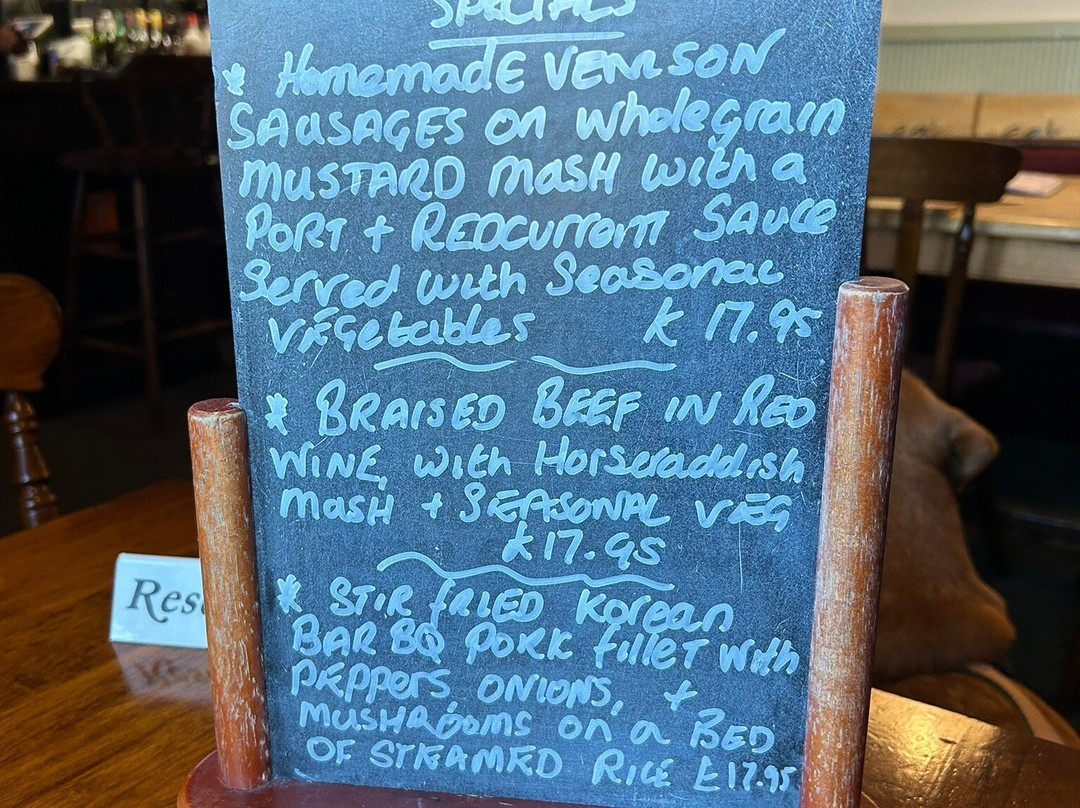 SPECIALS
* Homemade VENISON
SAUSAGES on wholegrain
MUSTARD MASH with a
PORT + REDCURRANT SAUCE
Served with Seasonal
VEGetables £ 17.95
* BRAISED BEEF IN RED
WINE, with Horseraddish
MASH + SEASONAL VEG
£17.95
* STIR FRIED Korean
BAR BQ PORK fillet with
PEPPERS ONIONS, +
MUSHROOMS on a BED
OF STEAMED RICE £17.95
Res